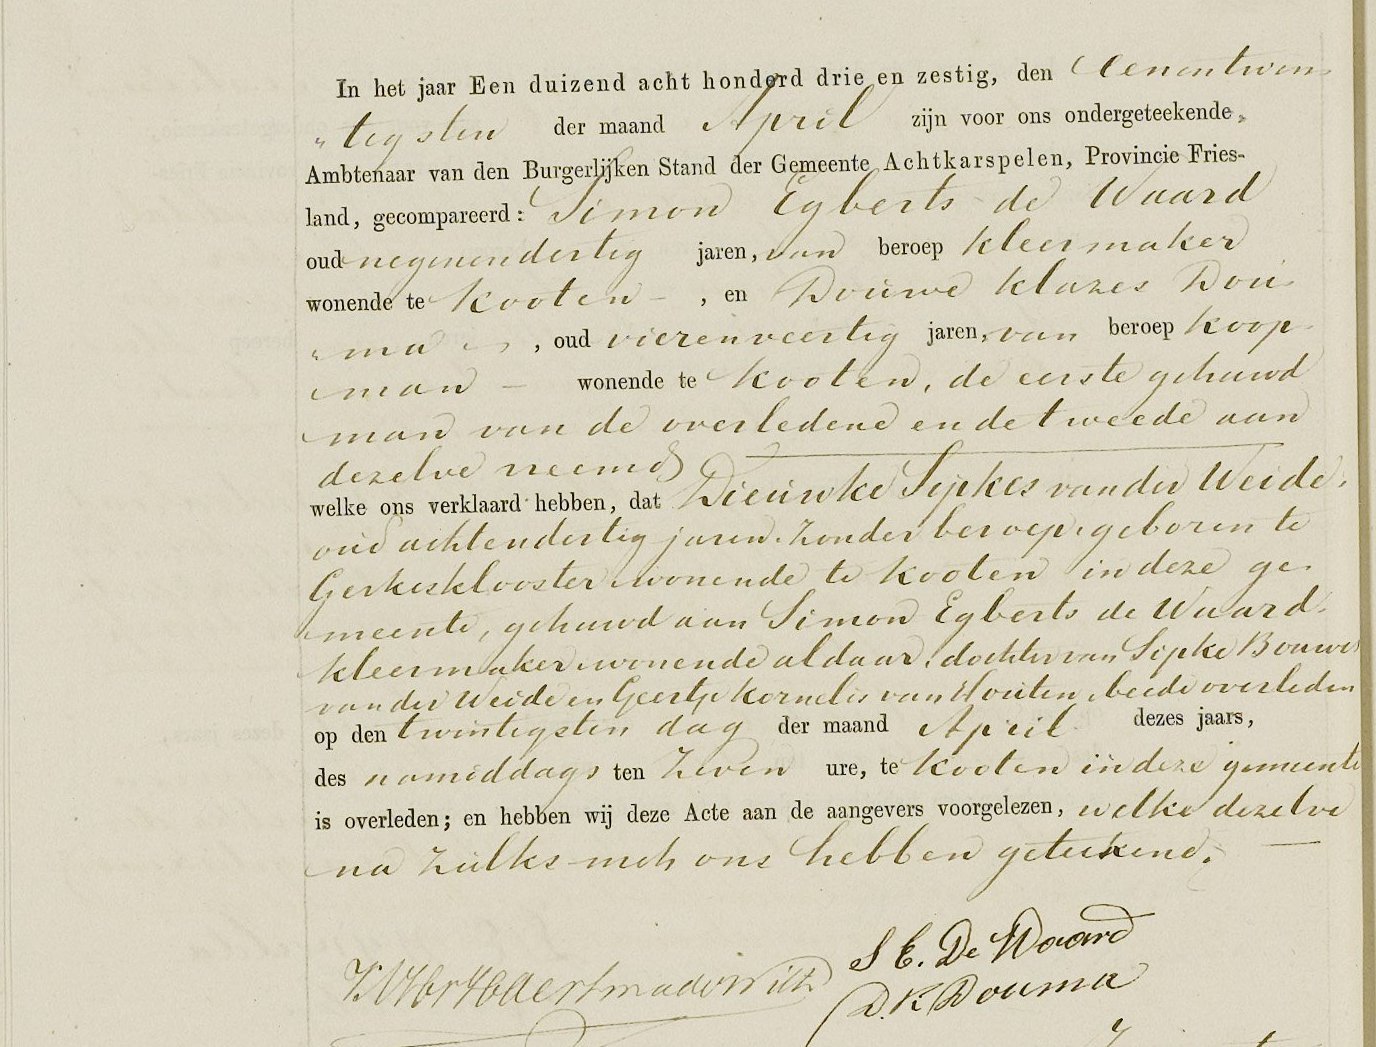 In het jaar Een duizend acht honderd drie en zestig, den eenentwin-
"tigsten der maand April zijn voor ons ondergeteekende,
Ambtenaar van den Burgerlijken Stand der Gemeente Achtkarspelen, Provincie Fries-
land, gecompareerd: Simon Egberts de Waard
oud negenendertig jaren, van beroep kleermaker
wonende te Kooten -, en Douwe Klazes Dou-
"ma -, oud vierenveertig jaren, van beroep koop-
man - wonende te Kooten, de eerste gehuwd
man van de overledene en de tweede aan
dezelve vreemd
welke ons verklaard hebben, dat Dieuwke Sijkes van der Weide,
oud achtendertig jaren, zonder beroep, geboren te
Gerkesklooster wonende te Kooten in deze ge-
meente, gehuwd aan Simon Egberts de Waard,
kleermaker wonende aldaar, dochter van Sipke Bouwes
van der Weide en Geertje Kornelis van Houten, beide overleden
op den twintigsten dag der maand April dezes jaars,
des namiddags ten zeven ure, te Kooten in deze gemeente
is overleden; en hebben wij deze Acte aan de aangevers voorgelezen, welke dezelve
na zulks met ons hebben geteekend.
S E. De Waard
D. K Douma